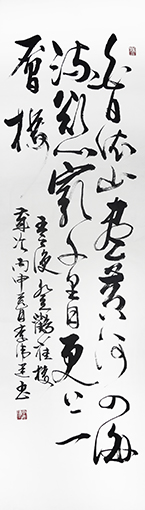 白日依山盡黄河入海
流欲窮千里目更上一
層樓
王之渙登鸛雀樓
歲次丙申夏月李書